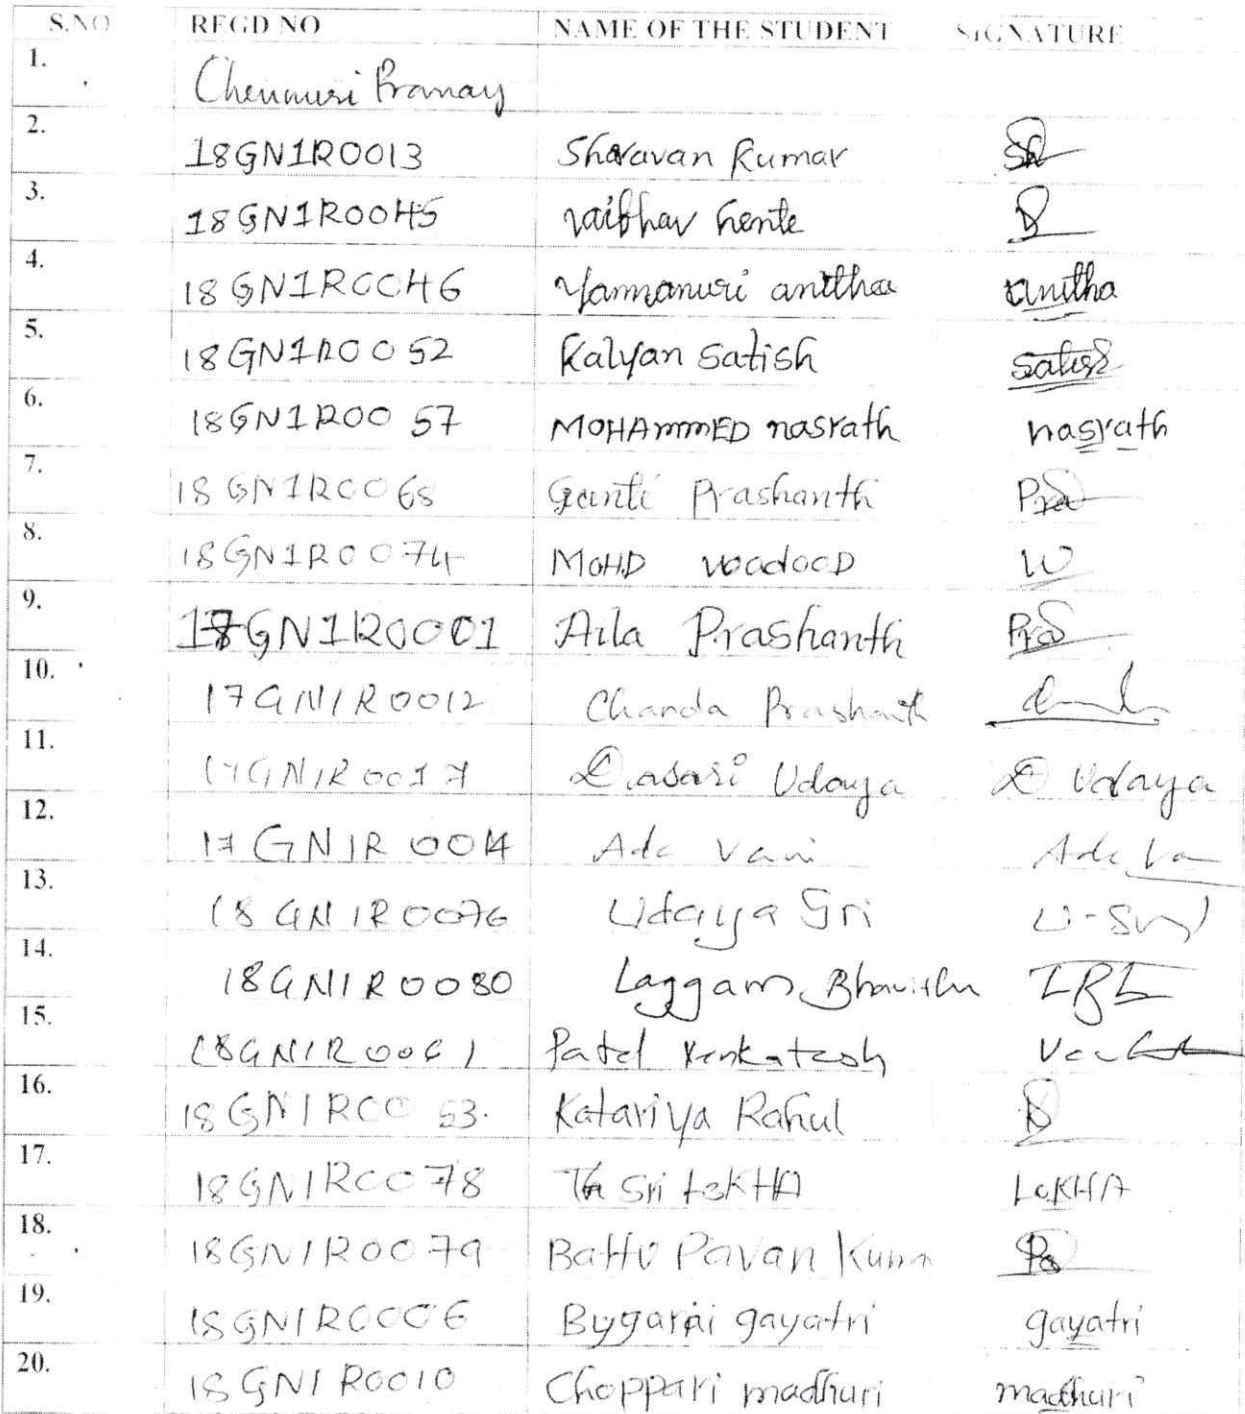 S.NO REGD NO NAME OF THE STUDENT SIGNATURE
1. Chennuri Pranay
2. 18GN1R0013 Sharavan Kumar
3. 18GN1R0045 vaibhav hente
4. 18GN1R0046 Yammanuri anitha anitha
5. 18GN1R0052 Kalyan Satish Satish
6. 18GN1R0057 MOHAmmED nasrath nasrath
7. 18GN1R0065 Ganti Prashanth Pra
8. 18GN1R0074 MOHD vaadooD W
9. 17GN1R0001 Aila Prashanth Pra
10. 17GN1R0012 Chanda Prashanth
11. 17GN1R0017 Dasari Udaya D Udaya
12. 17GN1R0014 Ade Vani Ade Va
13. 18GN1R0076 Udaya Sri U-Sri
14. 18GN1R0080 Laggam
15. 18GN1R0061 Patel Venkatesh
16. 18GN1R0053. Katariya Rahul
17. 18GN1R0078 Sri LekHA LeKHA
18. 18GN1R0079 Battu Pavan Kuma Pa
19. 18GN1R0006 Bygari gayatri gayatri
20. 18GN1R0010 Choppari madhuri madhuri